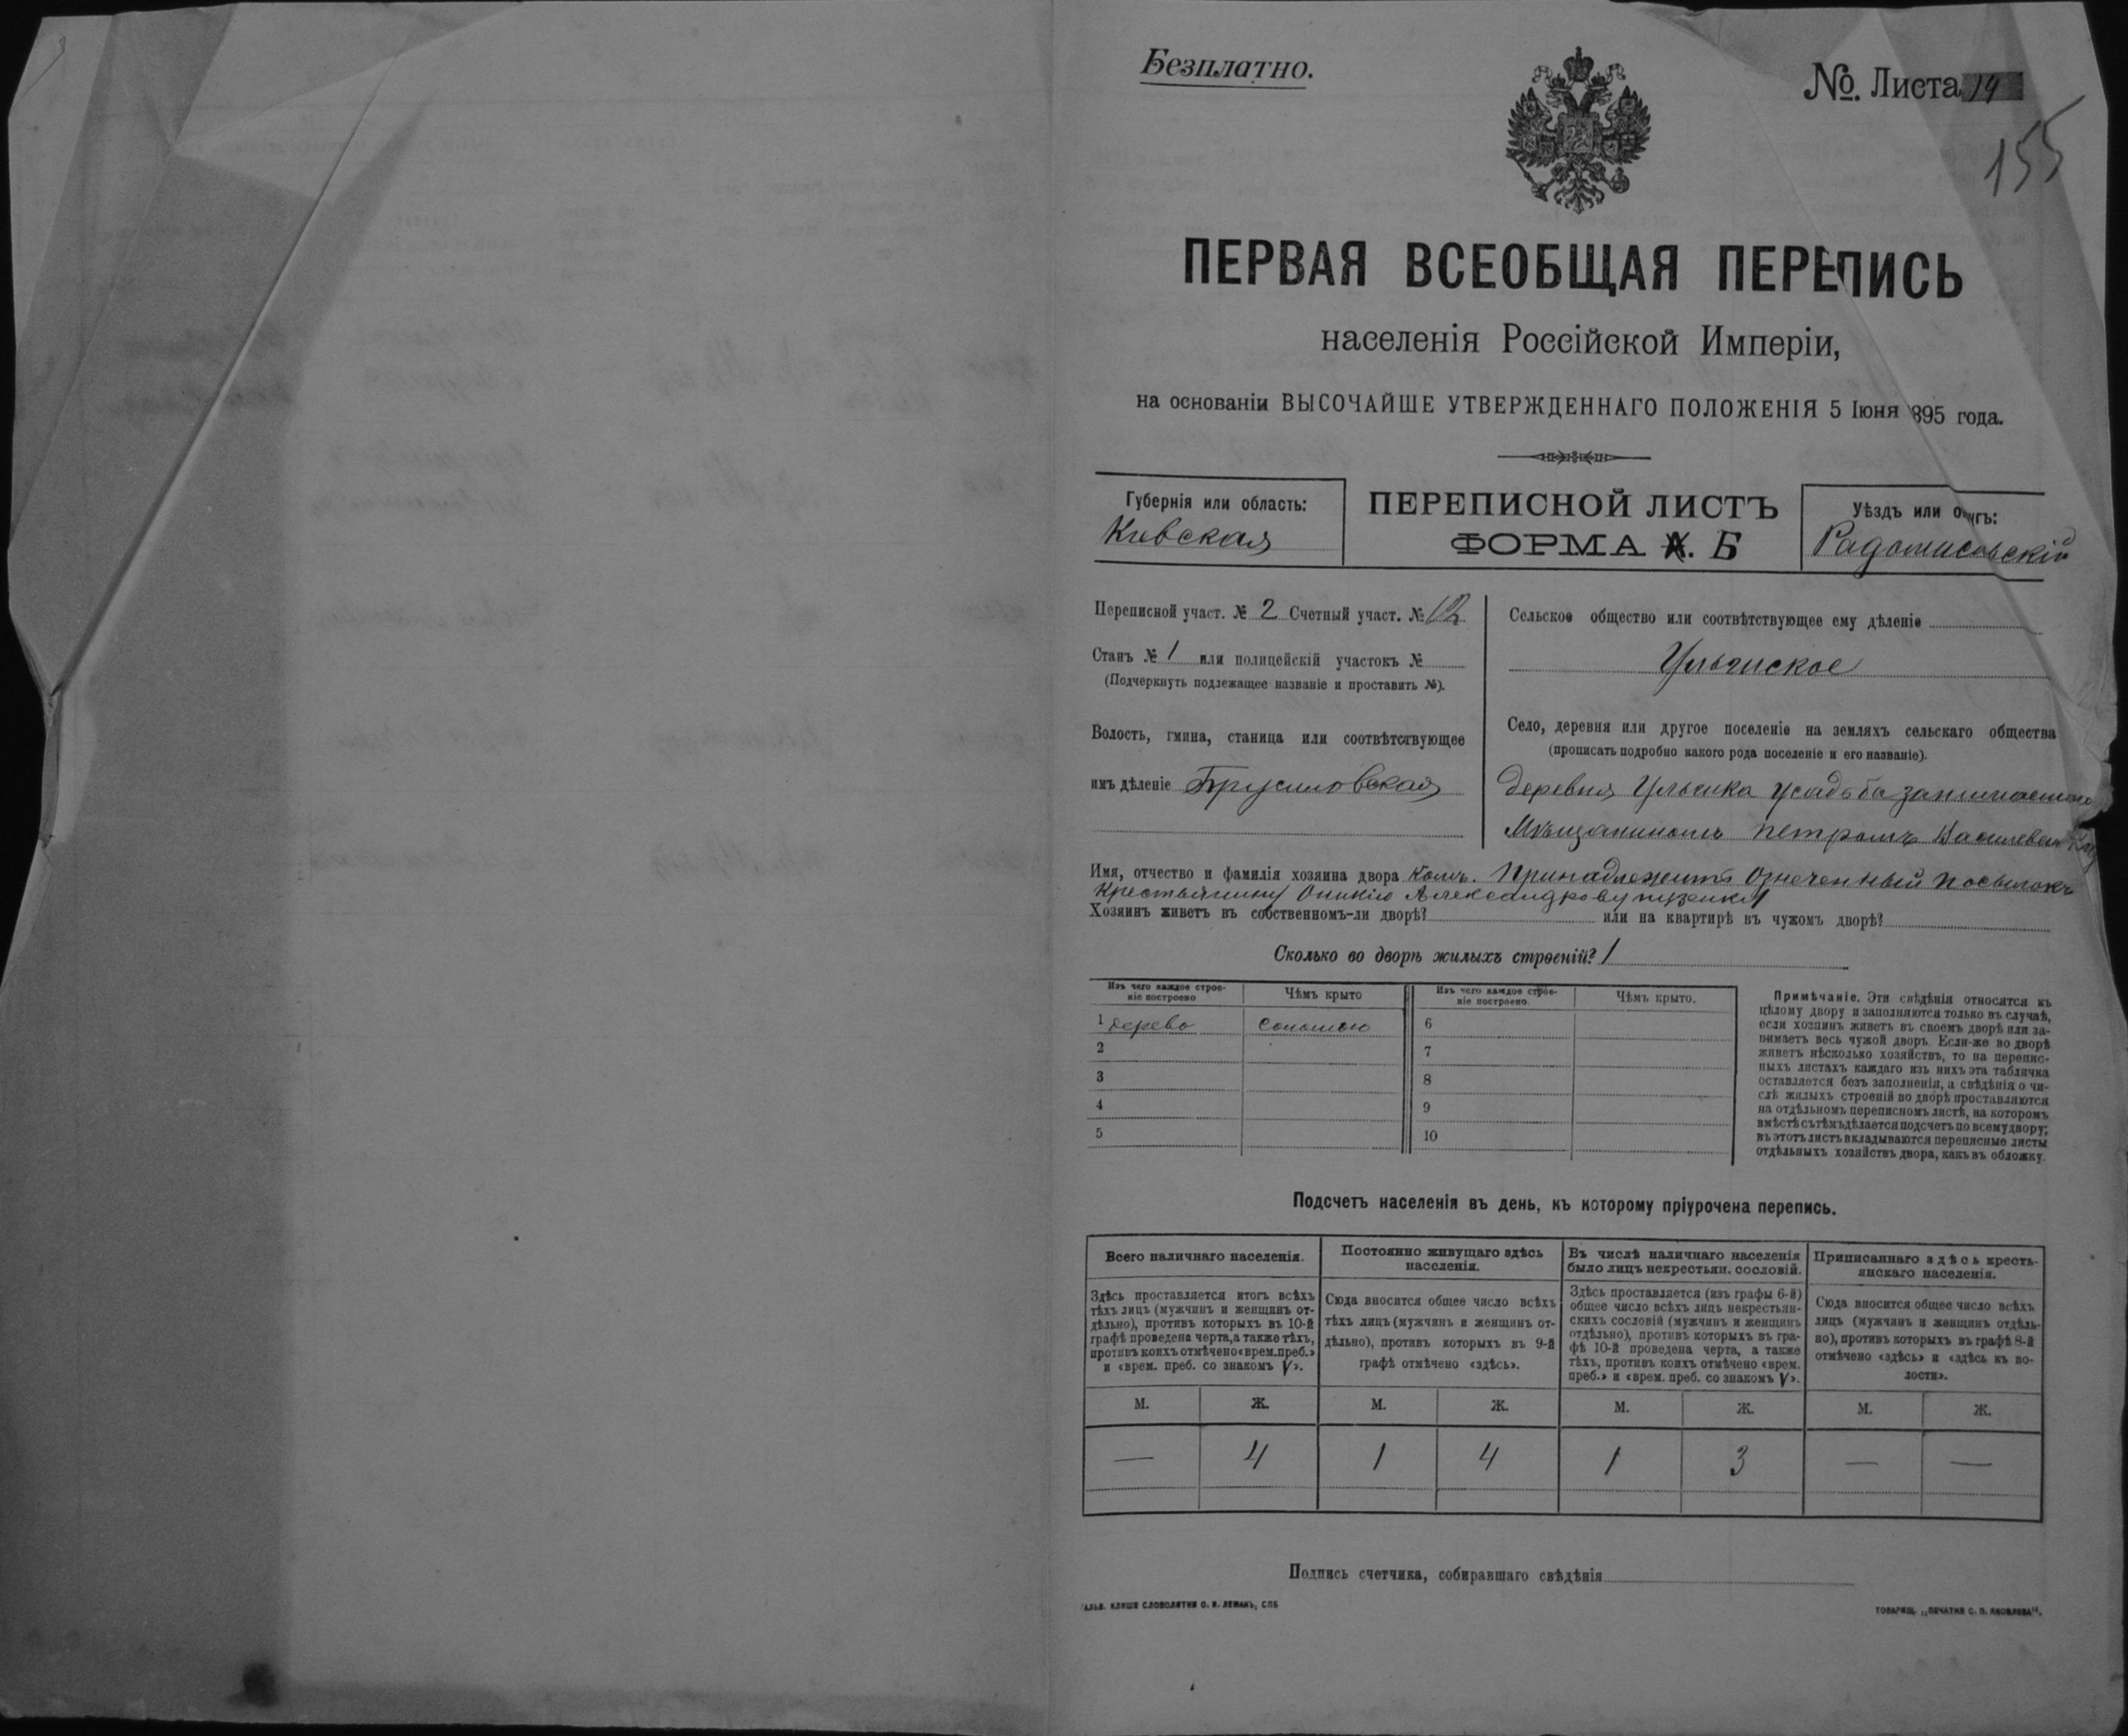 Безплатно.
№ Листа 14
155
ПЕРВАЯ ВСЕОБЩАЯ ПЕРЕПИСЬ
населенія Россійской Имперіи,
на основаніи ВЫСОЧАЙШЕ УТВЕРЖДЕННАГО ПОЛОЖЕНІЯ 5 Іюня 895 года.
Губернія или область:
Киевская
ПЕРЕПИСНОЙ ЛИСТЪ
ФОРМА А. Б
Уѣздъ или
Радомысльскій
Переписной участ. № 2 Счетный участ. № 12
Станъ № 1 или полицейскій участокъ №
(Подчеркнуть подлежащее названіе и проставить №).
Волость, гмина, станица или соотвѣтствующее
имъ дѣленіе Брусиловская
Сельское общество или соотвѣтствующее ему дѣленіе
Село, деревня или другое поселеніе на земляхъ сельскаго общества
(прописать подробно какого рода поселеніе и его названіе).
деревня усадьба
Мѣщаниномъ Петромъ
Имя, отчество и фамилія хозяина двора Принадлежитъ
Крестьянину
Хозяинъ живетъ въ собственномъ-ли дворѣ? или на квартирѣ въ чужомъ дворѣ?
Сколько во дворѣ жилыхъ строеній? 1
Изъ чего каждое строе-
ніе построено
Чѣмъ крыто
Изъ чего каждое строе-
ніе построено.
Чѣмъ крыто.
1 дерево соломою 6
2 7
3 8
4 9
5 10
Примѣчаніе. Эти свѣдѣнія относятся къ
цѣлому двору и заполняются только въ случаѣ,
если хозяинъ живетъ въ своемъ дворѣ или за-
нимаетъ весь чужой дворъ. Если-же во дворѣ
живетъ нѣсколько хозяйствъ, то на перепис-
ныхъ листахъ каждаго изъ нихъ эта табличка
оставляется безъ заполненія, а свѣдѣнія о чи-
слѣ жилыхъ строеній во дворѣ проставляются
на отдѣльномъ переписномъ листѣ, на которомъ
вмѣстѣ съ тѣмъ дѣлается подсчетъ по всему двору;
въ этотъ листъ вкладываются переписные листы
отдѣльныхъ хозяйствъ двора, какъ въ обложку.
Подсчетъ населенія въ день, къ которому пріурочена перепись.
Всего наличнаго населенія.
Постоянно живущаго здѣсь
населенія.
Въ числѣ наличнаго населенія
было лицъ некрестьян. сословій.
Приписаннаго здѣсь кресть-
янскаго населенія.
Здѣсь проставляется итогъ всѣхъ
тѣхъ лицъ (мужчинъ и женщинъ от-
дѣльно), противъ которыхъ въ 10-й
графѣ проведена черта, а также тѣхъ,
противъ коихъ отмѣчено «врем. преб.»
и «врем. преб. со знакомъ V».
Сюда вносится общее число всѣхъ
тѣхъ лицъ (мужчинъ и женщинъ от-
дѣльно), противъ которыхъ въ 9-й
графѣ отмѣчено «здѣсь».
Здѣсь проставляется (изъ графы 6-й)
общее число всѣхъ лицъ некрестьян-
скихъ сословій (мужчинъ и женщинъ
отдѣльно), противъ которыхъ въ гра-
фѣ 10-й проведена черта, а также
тѣхъ, противъ коихъ отмѣчено «врем.
преб.» и «врем. преб. со знакомъ V».
Сюда вносится общее число всѣхъ
лицъ (мужчинъ и женщинъ отдѣль-
но), противъ которыхъ въ графѣ 8-й
отмѣчено «здѣсь» и «здѣсь къ во-
лости».
М. Ж. М. Ж. М. Ж. М. Ж.
— 4 1 4 1 3 — —
Подпись счетчика, собиравшаго свѣдѣнія
ГАЛЬВ. КЛИШЕ СЛОВОЛИТНИ О. И. ЛЕМАНЪ, СПБ
ТОВАРИЩ. „ПЕЧАТНЯ С. П. ЯКОВЛЕВА“.